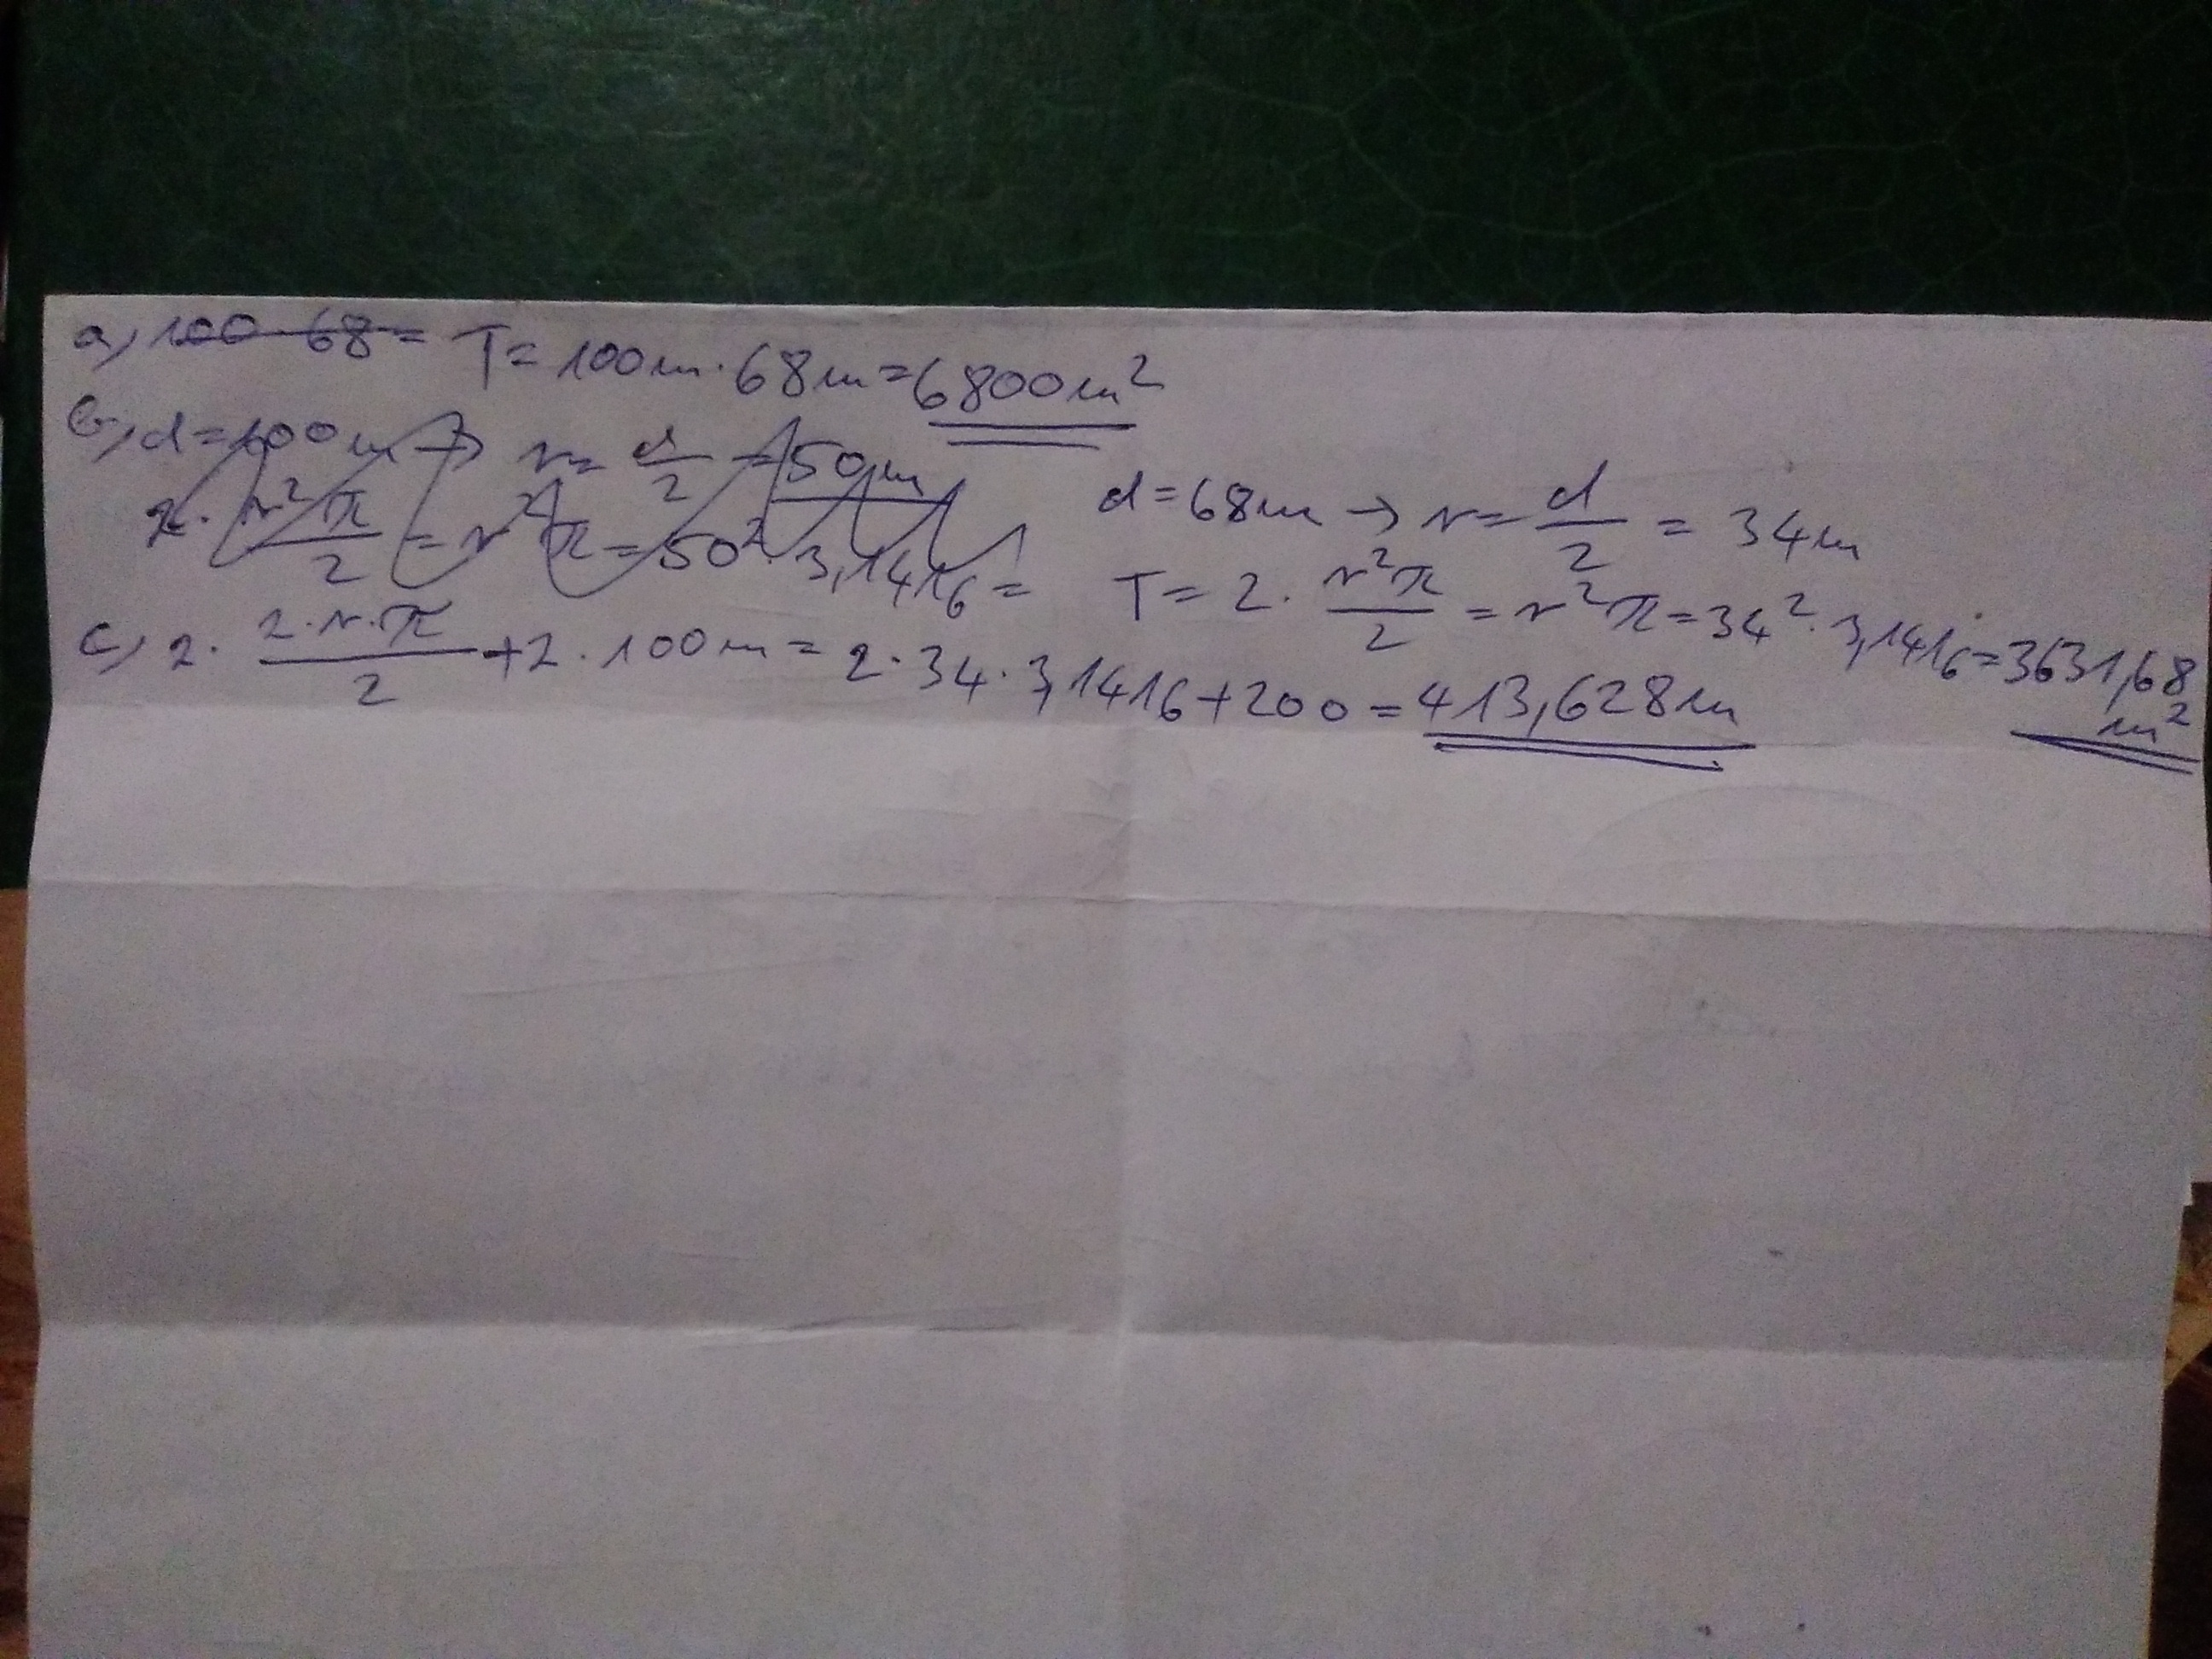 a, 100·68= T=100m·68m=6800m²
b, d=100m→ r=d/2=50m
2·r²π/2=r²π=50²·3,1416=
d=68m→r=d/2=34m
T=2·r²π/2=r²π=34²·3,1416=3631,68
m²
c, 2·2·r·π/2+2·100m=2·34·3,1416+200=413,628m